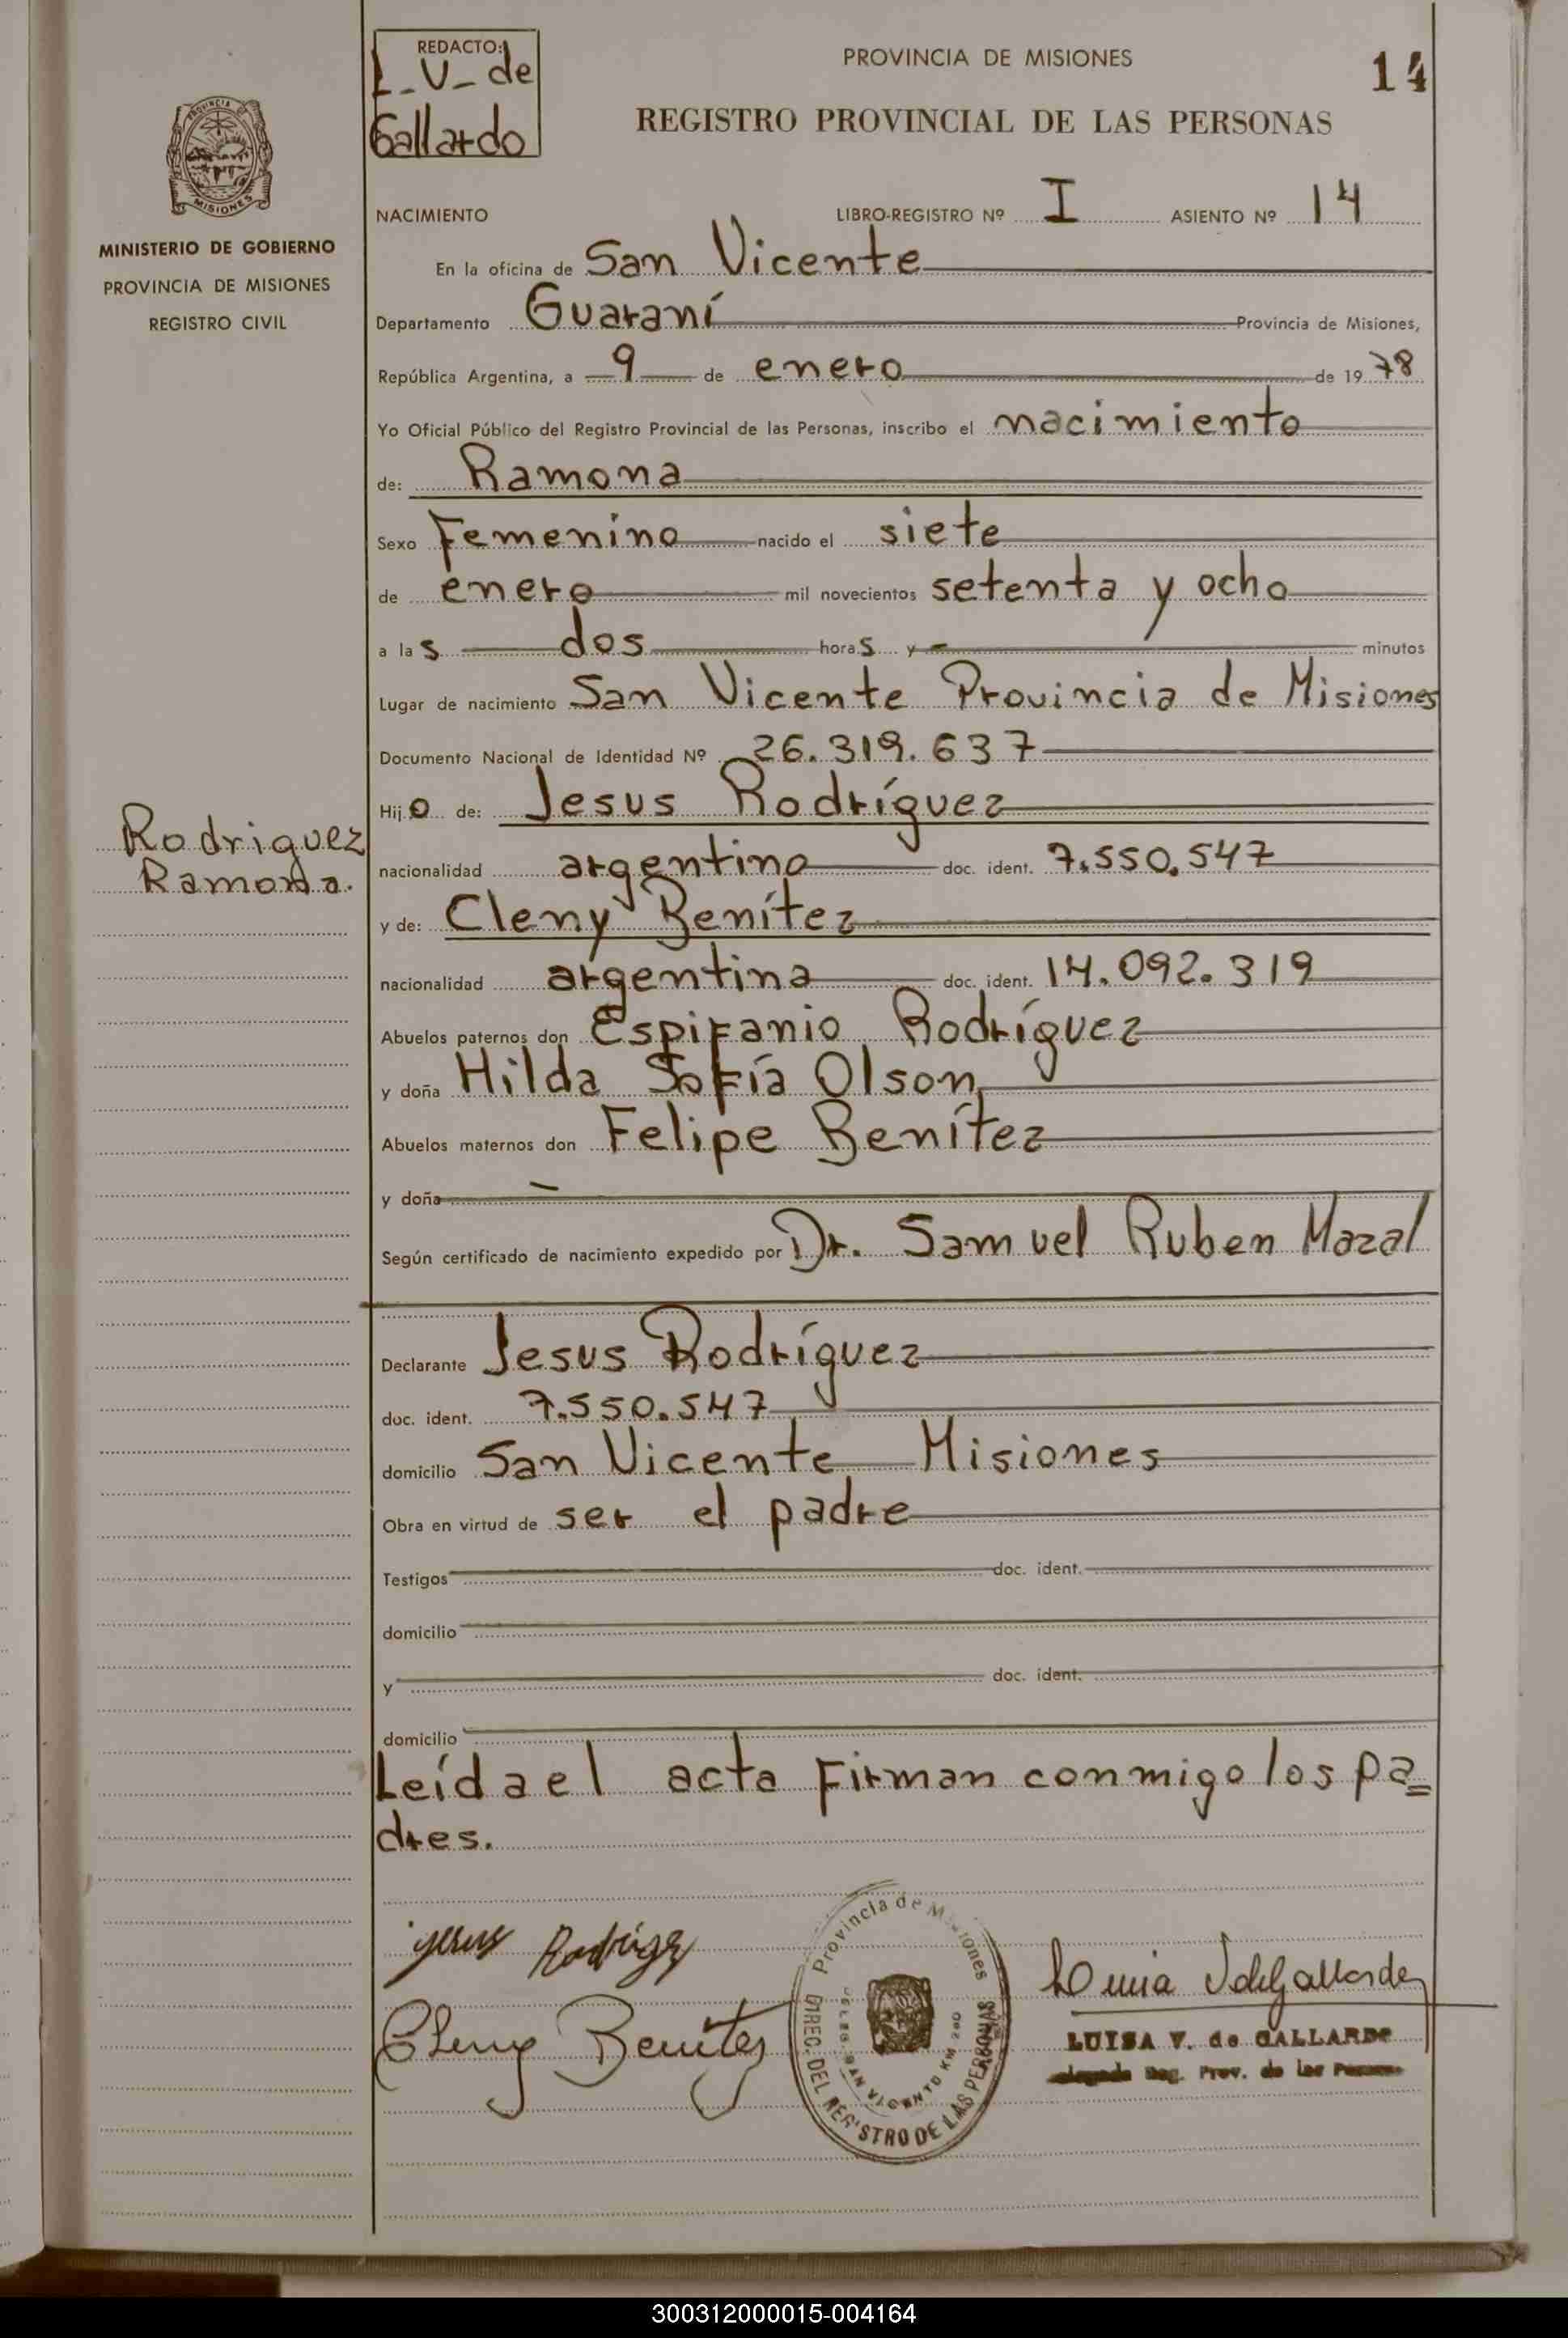 REDACTO:
L_V_ de
Gallardo
PROVINCIA DE MISIONES
14
REGISTRO PROVINCIAL DE LAS PERSONAS
PROVINCIA
MISIONES
MINISTERIO DE GOBIERNO
PROVINCIA DE MISIONES
REGISTRO CIVIL
NACIMIENTO LIBRO-REGISTRO Nº I ASIENTO Nº 14
En la oficina de San Vicente
Departamento Guaraní Provincia de Misiones,
República Argentina, a 9 de enero de 1978
Yo Oficial Público del Registro Provincial de las Personas, inscribo el nacimiento
de: Ramona
Sexo Femenino nacido el siete
de enero mil novecientos setenta y ocho
a las dos horas y - minutos
Lugar de nacimiento San Vicente Provincia de Misiones
Documento Nacional de Identidad Nº 26.319.637
Hijo de: Jesus Rodríguez
Rodriguez
Ramona.
nacionalidad argentino doc. ident. 7.550.547
y de: Cleny Benítez
nacionalidad argentina doc. ident. 14.092.319
Abuelos paternos don Espifanio Rodríguez
y doña Hilda Sofía Olson
Abuelos maternos don Felipe Benítez
y doña —
Según certificado de nacimiento expedido por Dr. Samuel Ruben Mazal
Declarante Jesus Rodríguez
doc. ident. 7.550.547
domicilio San Vicente Misiones
Obra en virtud de ser el padre
Testigos doc. ident.
domicilio
y doc. ident.
domicilio
Leída el acta firman conmigo los pa=
dres.
Jesus Rodrígez
Cleny Benítez
Provincia de Misiones
DIREC. DEL REGISTRO DE LAS PERSONAS
LUISA V. de GALLARDO
Reg. Prov. de las
300312000015-004164